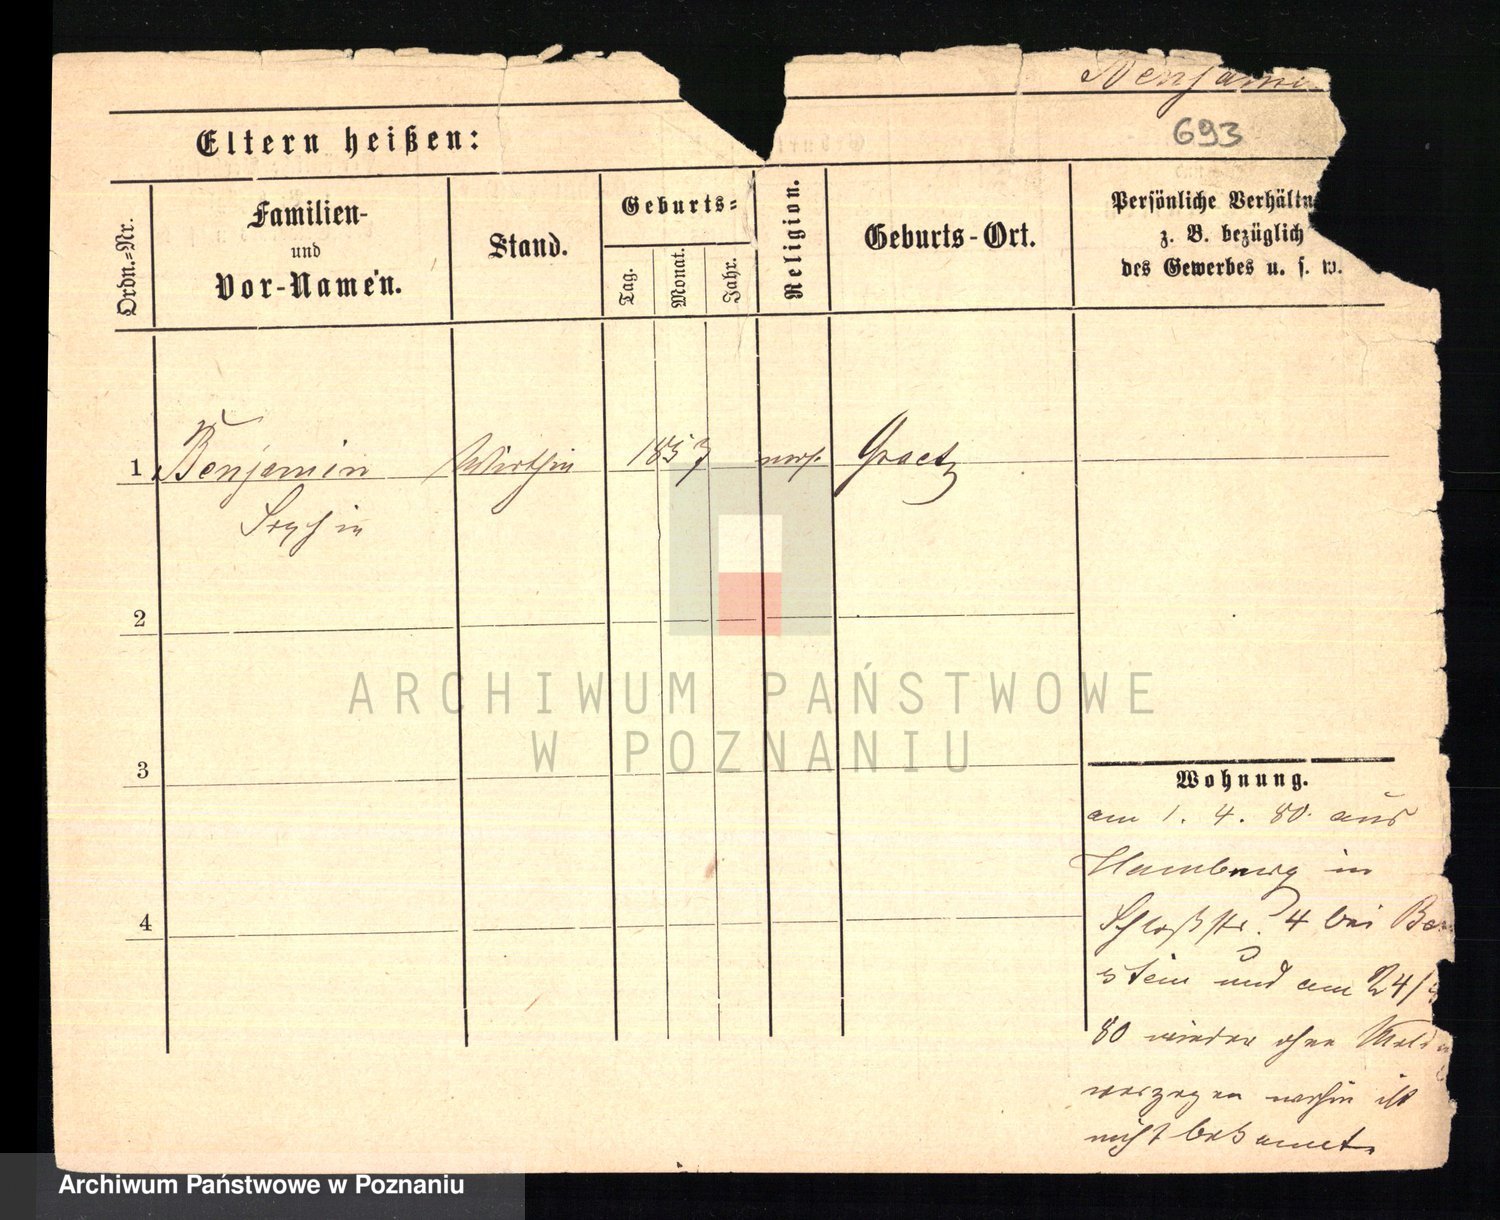 Benjamin
693
Eltern heißen:
Ordn.=Nr.
Familien-
und
Vor-Namen.
Stand.
Geburts=
Tag.
Monat.
Jahr.
Religion.
Geburts-Ort.
Persönliche Verhältn
z. B. bezüglich
des Gewerbes u. s. w.
1 Benjamin Wirthin 1857 mos. Graetz
Sophie
2
3
4
Wohnung.
am 1. 4. 80. aus
Hamburg in
Schloßstr. 4 bei Ber
stein und am 24/4
80 wieder ohne Meld
verzogen wohin ist
nicht bekannt.
ARCHIWUM PAŃSTWOWE
W POZNANIU
Archiwum Państwowe w Poznaniu